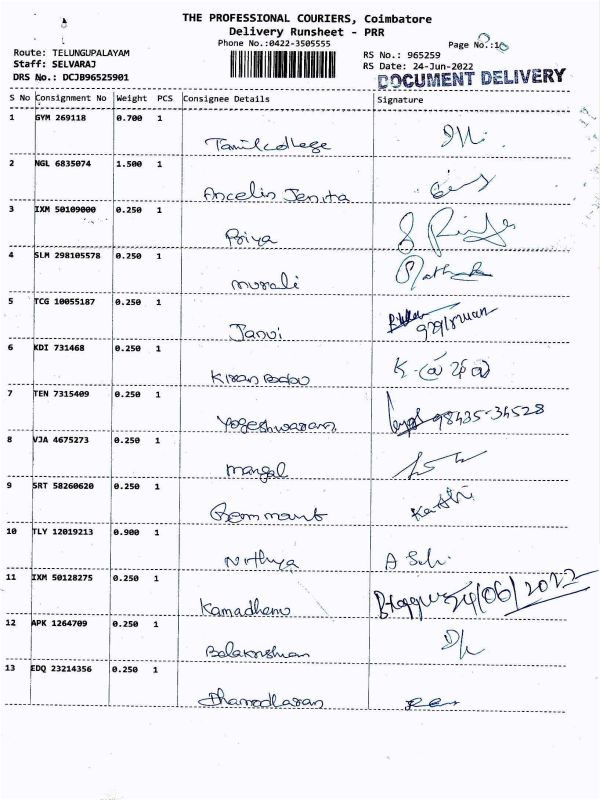 THE PROFESSIONAL COURIERS, Coimbatore
Delivery Runsheet - PRR
Phone No.:0422-3505555
Page No.:
Route: TELUNGUPALAYAM
Staff: SELVARAJ
DRS No.: DCJB96525901
RS No.: 965259
RS Date: 24-Jun-2022
DOCUMENT DELIVERY
S No Consignment No Weight PCS Consignee Details Signature
1 GYM 269118 0.700 1
Tamil college
2 NGL 6835074 1.500 1
Ancelin Jenita
3 IXM 50109000 0.250 1
Priya
4 SLM 298105578 0.250 1
murali
5 TCG 10055187 0.250 1
Janvi
6 KDI 731468 0.250 1
Kiran Babu
7 TEN 7315409 0.250 1
Yogeshwaran 98435-34528
8 VJA 4675273 0.250 1
mangal
9 SRT 58260620 0.250 1
10 TLY 12019213 0.900 1
Nithya
11 IXM 50128275 0.250 1
Kamadhenu 24/06/2022
12 APK 1264709 0.250 1
Balakrishnan
13 EDQ 23214356 0.250 1
Dhamodharan